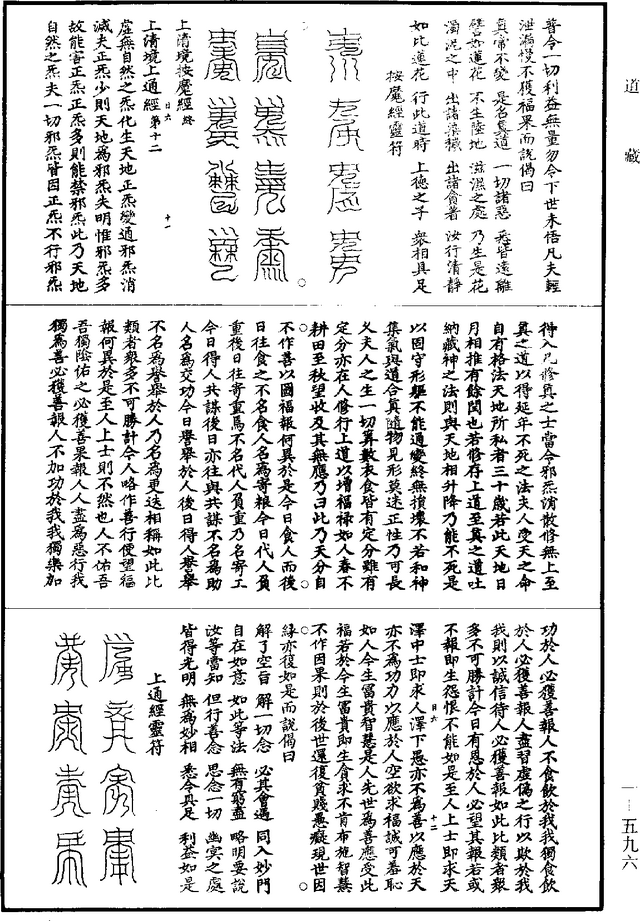 道藏
普令一切利益無量勿令下世未悟凡夫輕
泄漏慢不獲福果而說偈曰
真常不變 是名真道 一切諸惡 悉皆遠離
譬如蓮花 不生陸地 滋濕之處 乃生是花
濁泥之中 出諸染穢 出諸貪著 汝行清靜
如此蓮花 行此道時 上德之子 衆相具足
按魔經靈符
上清境按魔經終
上清境上通經第十二
日六 十一
虛無自然之炁化生天地正炁變通邪炁消
滅夫正炁少則天地為邪炁失明惟邪炁多
故能害正炁正炁多則能禁邪炁此乃天地
自然之炁夫一切邪炁皆因正炁不行邪炁
得入凡修真之士當令邪炁消散修無上至
真之道以得延年不死之法夫人受天之命
自有格法天地所私者三十歲若此天地日
月相推有餘閏也若修存上道至真之道吐
納藏神之法則與天地相升降乃能不死是
以固守形軀不能通變終無損壞不若和神
集氣與道合真隨物見形莫迷正性乃可長
久夫人之生一切算數衣食皆有定分雖有
定分亦在人修行上道以增福祿如人春不
耕田至秋望收及其無應乃曰此乃天分自
不作善以國福報何異於是今日食人而後
日往食之不名食人名為寄報今日代人負
重後日往寄重焉不名代人負重乃名寄工
今日得人共謀後日亦往與共謀不名為助
人名為交功今日譽舉於人後日得人譽舉
不名為譽舉於人乃名為更迭相稱如此比
類者衆多不可勝計今人略作善行便望福
報何異於是至人上士則不然也人不佑吾
吾獨陰佑之必獲善果報人人盡為惡行我
獨為善必獲善報人不加功於我我獨樂加
功於人必獲善報人不食飲於我我獨食飲
於人必獲善報人盡習虛偽之行以欺於我
我則以誠信待人必獲善報如此比類者衆
多不可勝計今日有恩於人必望其報若或
不報即生怨恨不能如是至人上士即求天
日六 十二
澤中士即求人澤下愚亦不為善以應於天
亦不為功力以應於人空欲求福誠可羞恥
如人今生富貴智慧是人先世為善應受此
福若於今生富貴即生貪求不肯布施智慧
不作因果則於後世還復貧賤愚癡現世因
緣亦復如是而說偈曰
解了空旨 解一切念 必其會遇 同入妙門
自在如意 如此等法 無有窮盡 略明要說
汝等當知 但行善念 思念一切 幽冥之處
皆得光明 無為妙相 悉令具足 利益如是
上通經靈符
一—五九六